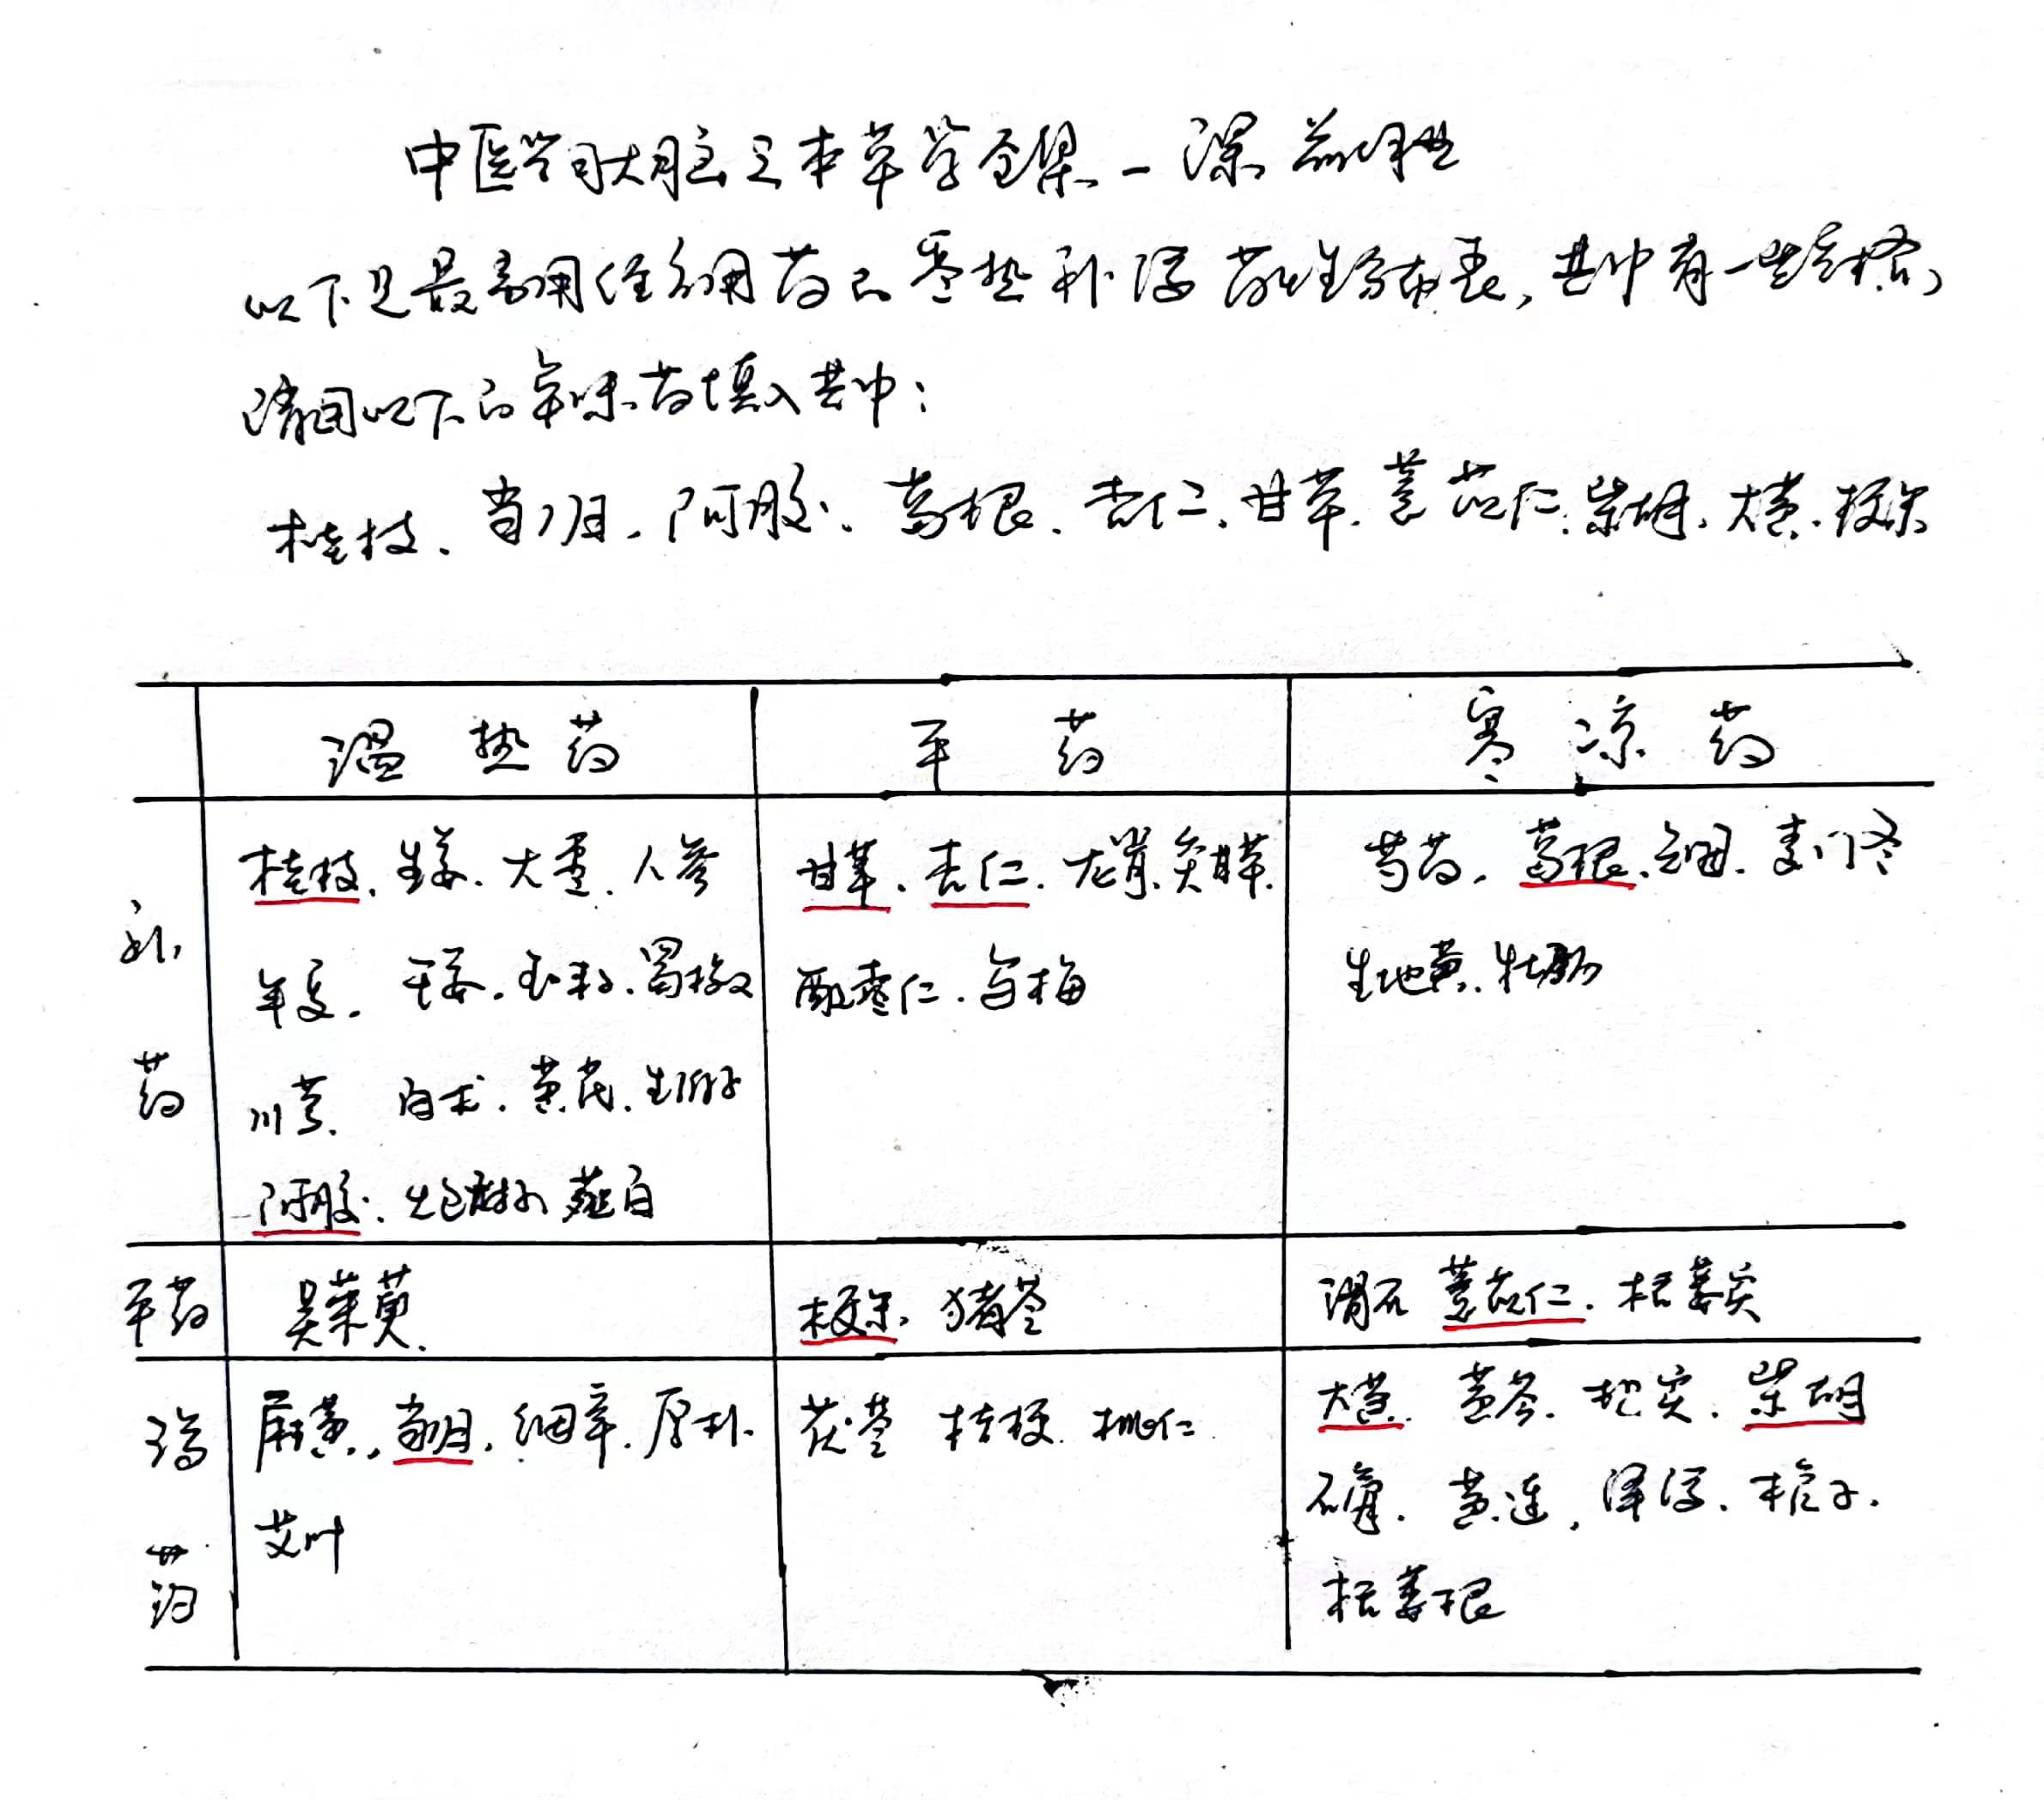 中医学习大脑之本草学全集一课前作业
以下是最常用经方用药的寒热补泻药性分布表,其中有一些空格,
请用以下的单味药填入其中:
桂枝、当归、阿胶、葛根、杏仁、甘草、薏苡仁、柴胡、大黄、粳米
温热药 平药 寒凉药
补药
桂枝、生姜、大枣、人参
半夏、干姜、五味子、蜀椒
川芎、白术、黄芪、生附子
阿胶、炮附子、薤白
甘草、杏仁、龙骨、炙甘草、
酸枣仁、乌梅
芍药、葛根、知母、麦门冬
生地黄、牡蛎
平药
吴茱萸、
粳米、猪苓
滑石 薏苡仁、栝蒌实
泻药
麻黄、当归、细辛、厚朴、
艾叶
茯苓 桔梗 桃仁
大黄、黄芩、枳实、柴胡
石膏、黄连、泽泻、栀子、
栝蒌根